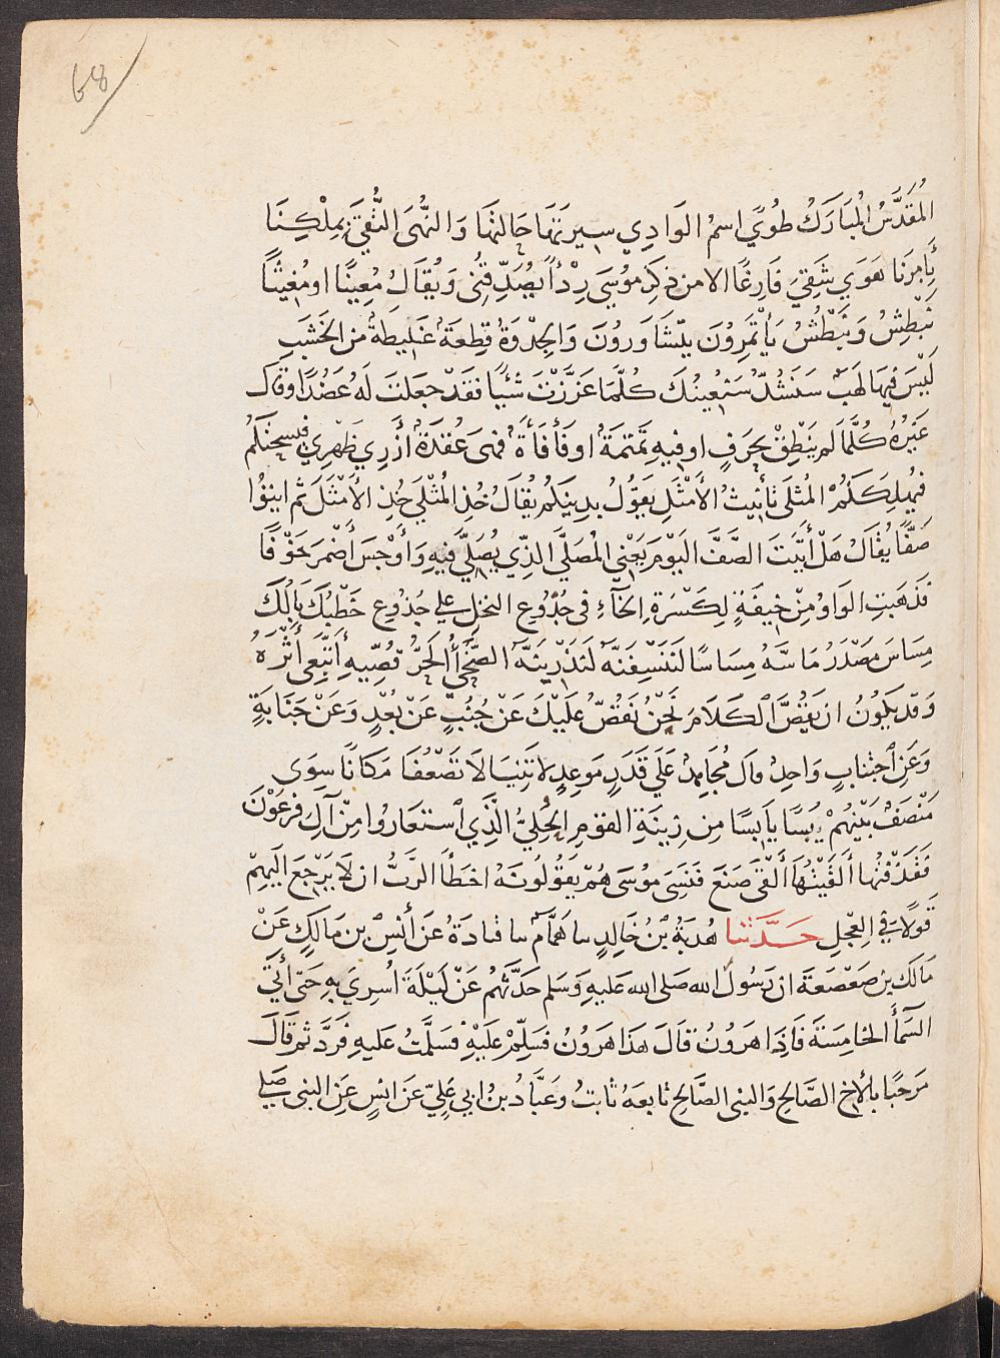 68
المُقَدَّسُ المُبَارَكُ طُوًى اسمُ الوَادِي سِيرَتَهَا حَالتَهَا وَالنُّهَى التُّقَى بِمِلْكِنَا
بِأَمرِنَا هَوَى شَقِيَ فَارِغًا الا من ذِكرِ مُوسَى رِدْأً يُصَدِّقُنِى وَيُقَالُ مُعِينًا او مُغِيثًا
نَبْطِشُ وَيَبْطُشُ يَأْتَمِرُونَ يتَشَاوَرُونَ وَالجِذْوَةُ قِطعَةٌ غَلِيظَةٌ من الخَشَبِ
لَيْسَ فيهَا لَهَبٌ سَنَشُدُّ سَنُعِينُكَ كُلَّمَا عَزَّزْتَ شَيْأً فَقَدْ جَعَلتَ لَهُ عَضُدًا وقال
غَيْرُهُ كُلَّمَا لم يَنْطِقْ بِحَرفٍ او فِيهِ تَمتَمَةٌ او فَأْفَأَةٌ فَهىَ عُقدَةٌ أَزْرِي ظَهْرِي فيسحتَكُم
فيُهلِكَكُمْ المُثلَى تَأنِيثُ الأَمْثَلِ يَقُولُ بدِينِكُم يُقَالُ خُذِ المُثْلَى خُذِ الأَمْثَلَ ثم ايتُوا
صَفًّا يُقَالُ هَلْ أَتَيْتَ الصَّفَّ اليَوْمَ يَعْنِي المُصَلَّى الَّذِي يُصَلَّى فِيهِ وَأَوْجَسَ أَضْمَرَ خَوْفًا
فَذَهَبَتِ الوَاوُ مِنْ خِيفَةٍ لِكَسْرَةِ الخَاءِ فى جُذُوعِ النخلِ على جُذوعِ خَطْبُكَ بَالُكَ
مِسَاسَ مَصْدَرُ مَاسَّهُ مِسَاسًا لَنَنْسِفَنَّهُ لَنَذْرِيَنَّهُ الضَّحَاءُ الحَرُّ قُصِّيهِ أَتْبِعِى أَثَرَهُ
وَقد يَكُونُ ان يَقُصَّ الكَلَامَ نَحْنُ نَقُصُّ عَلَيْكَ عَنْ جُنُبٍ عَنْ بُعْدٍ وَعَنْ جَنَابَةٍ
وَعَنِ ٱجتنابٍ وَاحِدٌ قال مُجَاهِدٌ عَلَى قَدَرٍ مَوعِدٍ لا تَنِيَا لَا تَضْعُفَا مَكَانًا سِوَى
مَنْصَفٌ بَيْنَهُمْ يَبَسًا يَابسًا مِن زِينَةِ القومِ الحُلِيِّ الَّذِي ٱستعَارُوا مِنْ آلِ فِرعَوْنَ
فَقَذَفْتُها أَلْقَيْتُهَا أَلْقَى صَنَعَ فَنَسِىَ مُوسَى هُمْ يَقُولُونَهُ اخطَأَ الرَّبَّ ان لَا يَرْجِعَ الَيهِمْ
قَولًا فِي العِجْلِ حَدَّثَنا هُدبَةُ بْنُ خَالِدٍ نا هَمَّامٌ نا قتادَةُ عَن أَنسِ بن مَالكٍ عَنْ
مَالك بن صَعْصَعَةَ ان رَسُولَ الله صلى الله عَليهِ وَسَلم حَدَّثهُم عَنْ لَيْلَةَ اُسرِيَ بِهِ حَتى أَتَى
السَّمآءَ الخَامِسَةَ فَإِذَا هَرُونُ قَالَ هَذَا هَرُونُ فَسَلِّمْ عَلَيْهِ فَسَلَّمْتُ عَلَيهِ فَرَدَّ ثم قَالَ
مَرحَبًا بالأخِ الصَّالحِ وَالنبى الصَّالحِ تَابعَهُ ثَابتٌ وعَبَّادُ بنُ ابي عَلِيّ عَن انسٍ عَنِ النبى صَلى